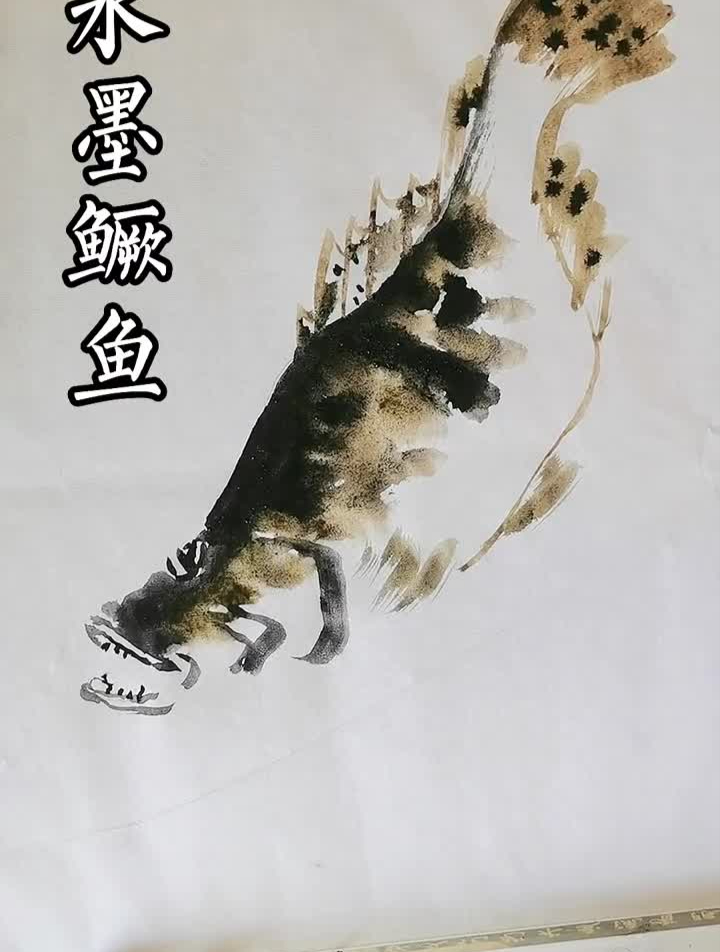 水墨鳜鱼